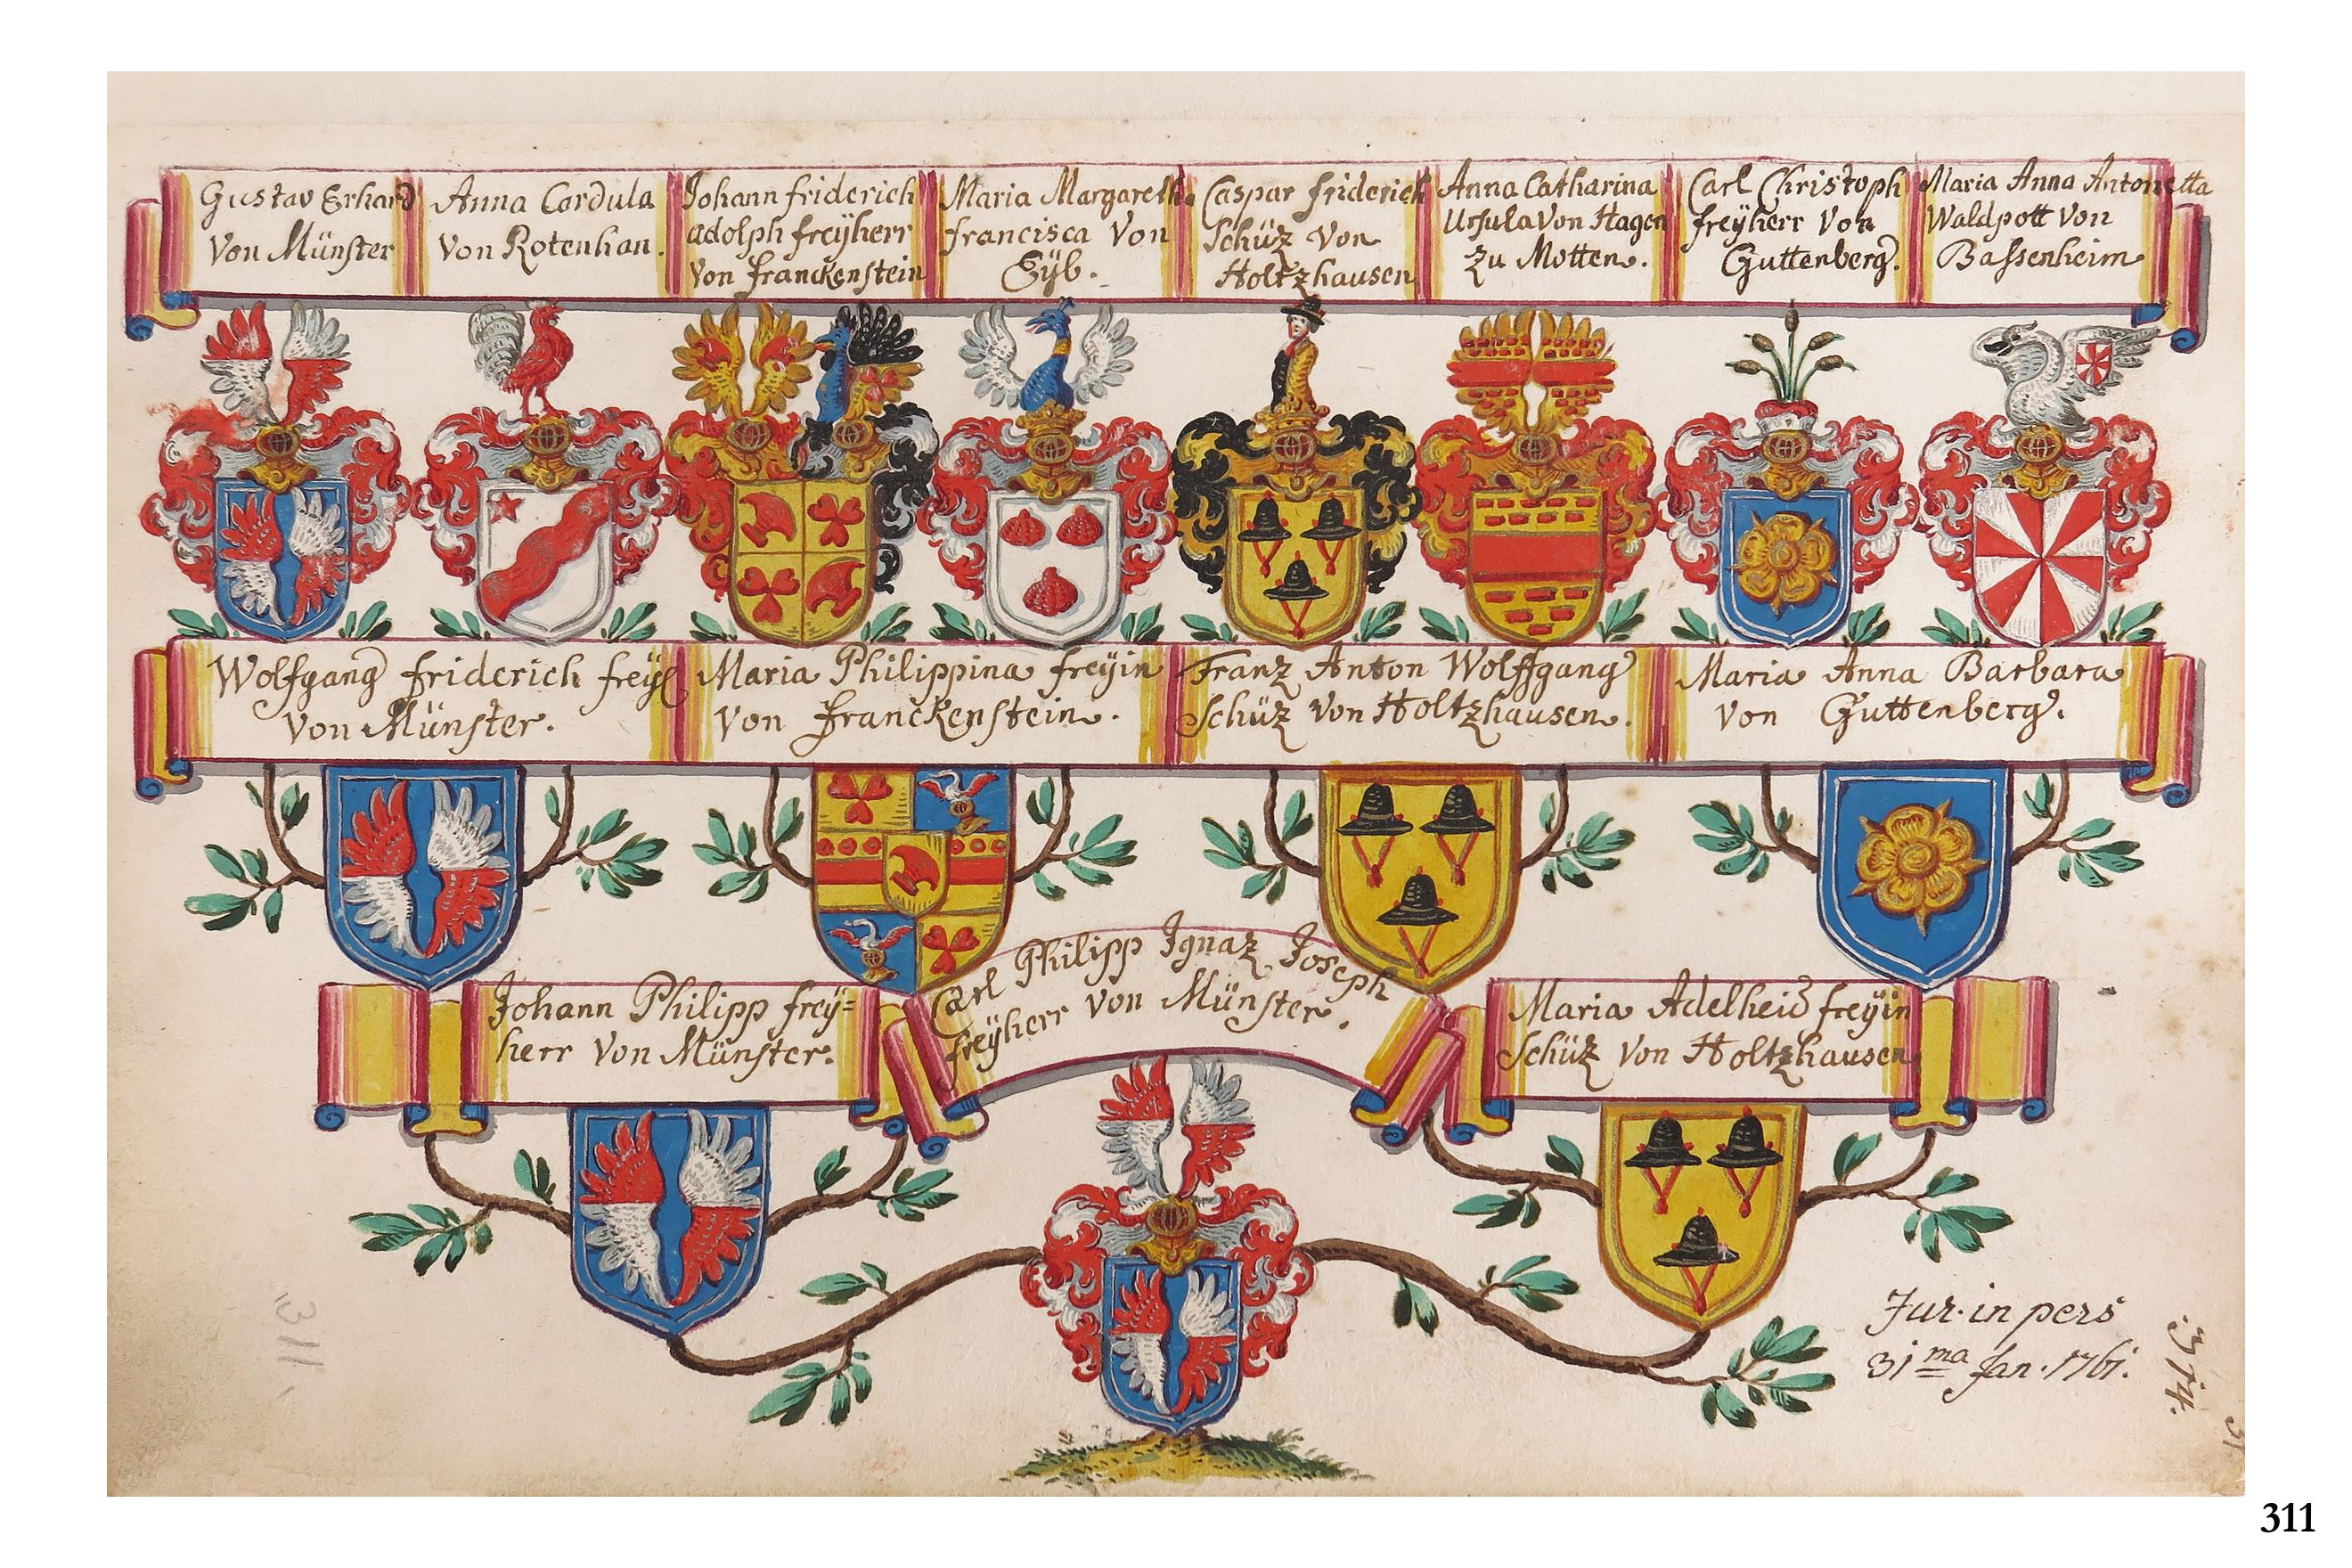 Gustav Erhard
Von Münster
Anna Cordula
Von Rotenhan.
Johann friderich
adolph freÿherr
Von franckenstein
Maria Margareth.
francisca Von
Eÿb.
Caspar friderich
Schüz Von
Holtzhausen
Anna Catharina
Ursula Von Hagen
zu Motten.
Carl Christoph
freÿherr Von
Guttenberg.
Maria Anna Antonetta
Waldpott Von
Bassenheim
Wolfgang friderich
Von Münster.
Maria Philippina freÿin
Von franckenstein.
Franz Anton Wolffgang
Schüz Von Holtzhausen.
Maria Anna Barbara
Von Guttenberg.
Johann Philipp freÿ=
herr Von Münster.
Carl Philipp Ignaz Joseph
freÿherr Von Münster.
Maria Adelheid freÿin
Schüz Von Holtzhausen
Jur. in pers
31ma Jan. 1761.
311
314.
311